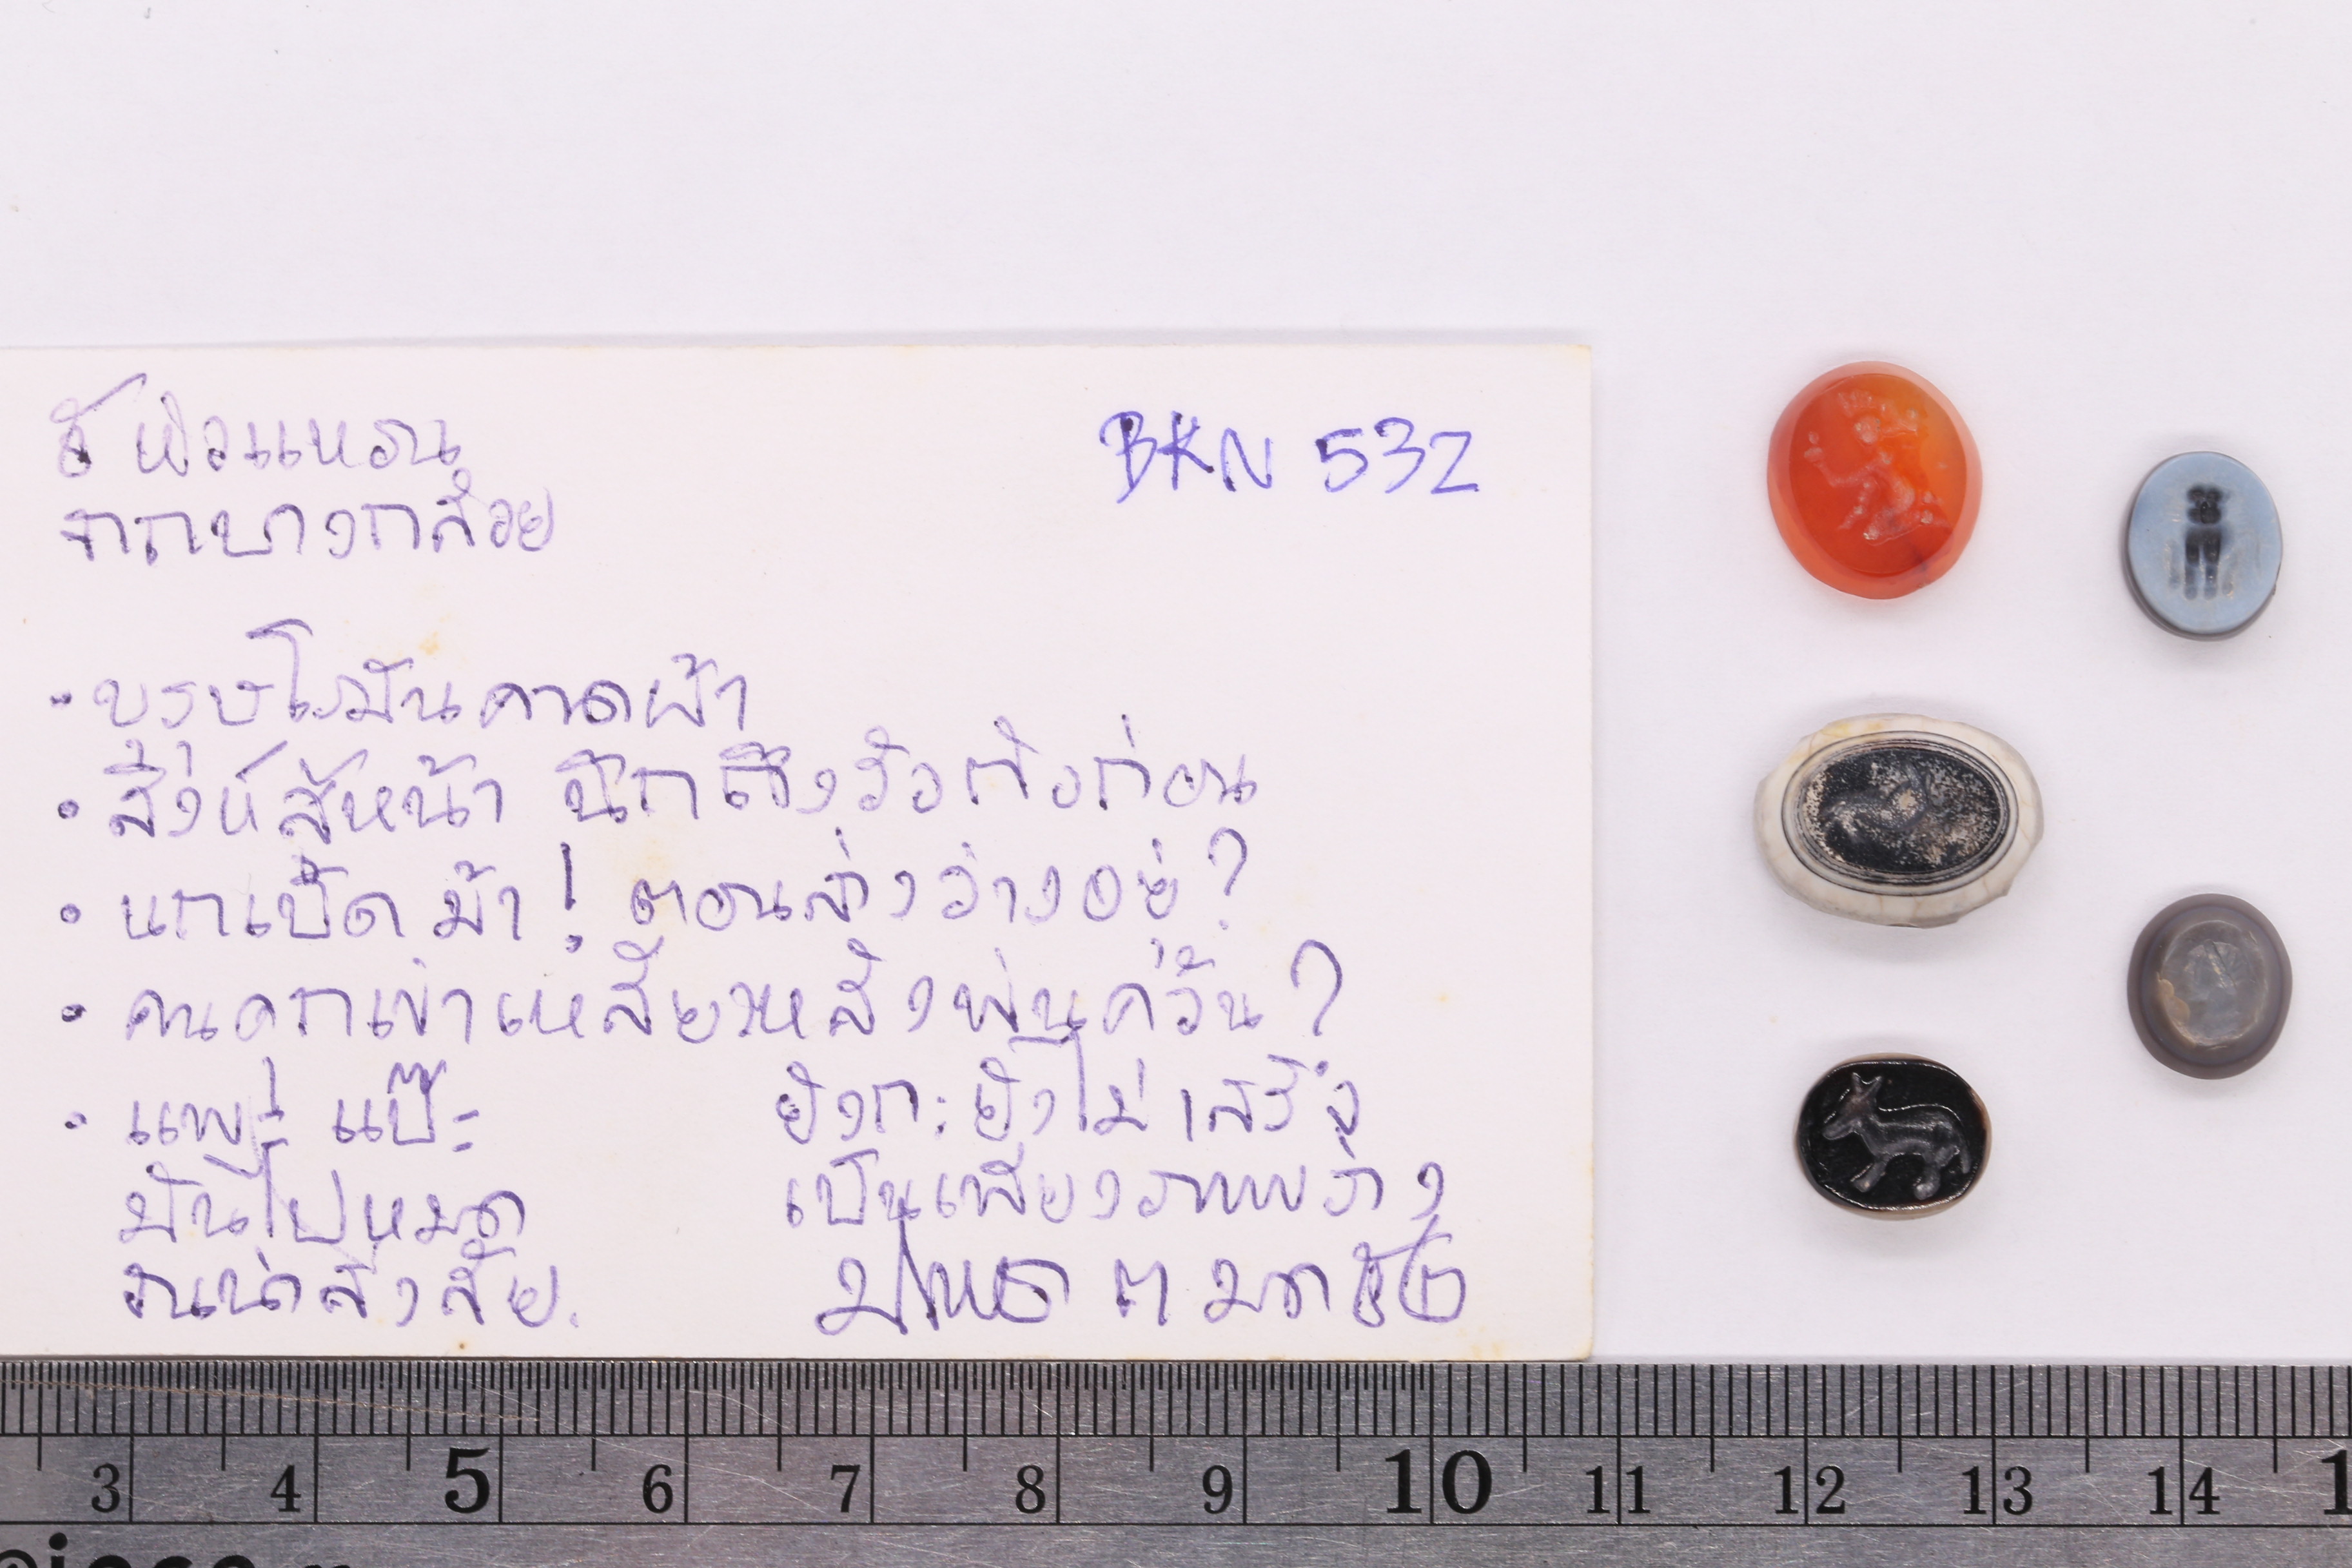 ๕ หัวแหวน
จากบางกล้วย
BKN 532
• บุรุษโรมันคาดผ้า
• สิงห์สี่หน้า นึกถึงวัวก่อน
• นกเป็ด ม้า! ตอนส่งว่างอยู่?
• คนคุกเข่าเหลียวหลังพ่นควัน?
• แพะ! แป๊ะ
มันไปหมด
จนน่าสงสัย.
ยังกะยังไม่เสร็จ
เป็นเพียงภาพร่าง
3 4 5 6 7 8 9 10 11 12 13 14 1